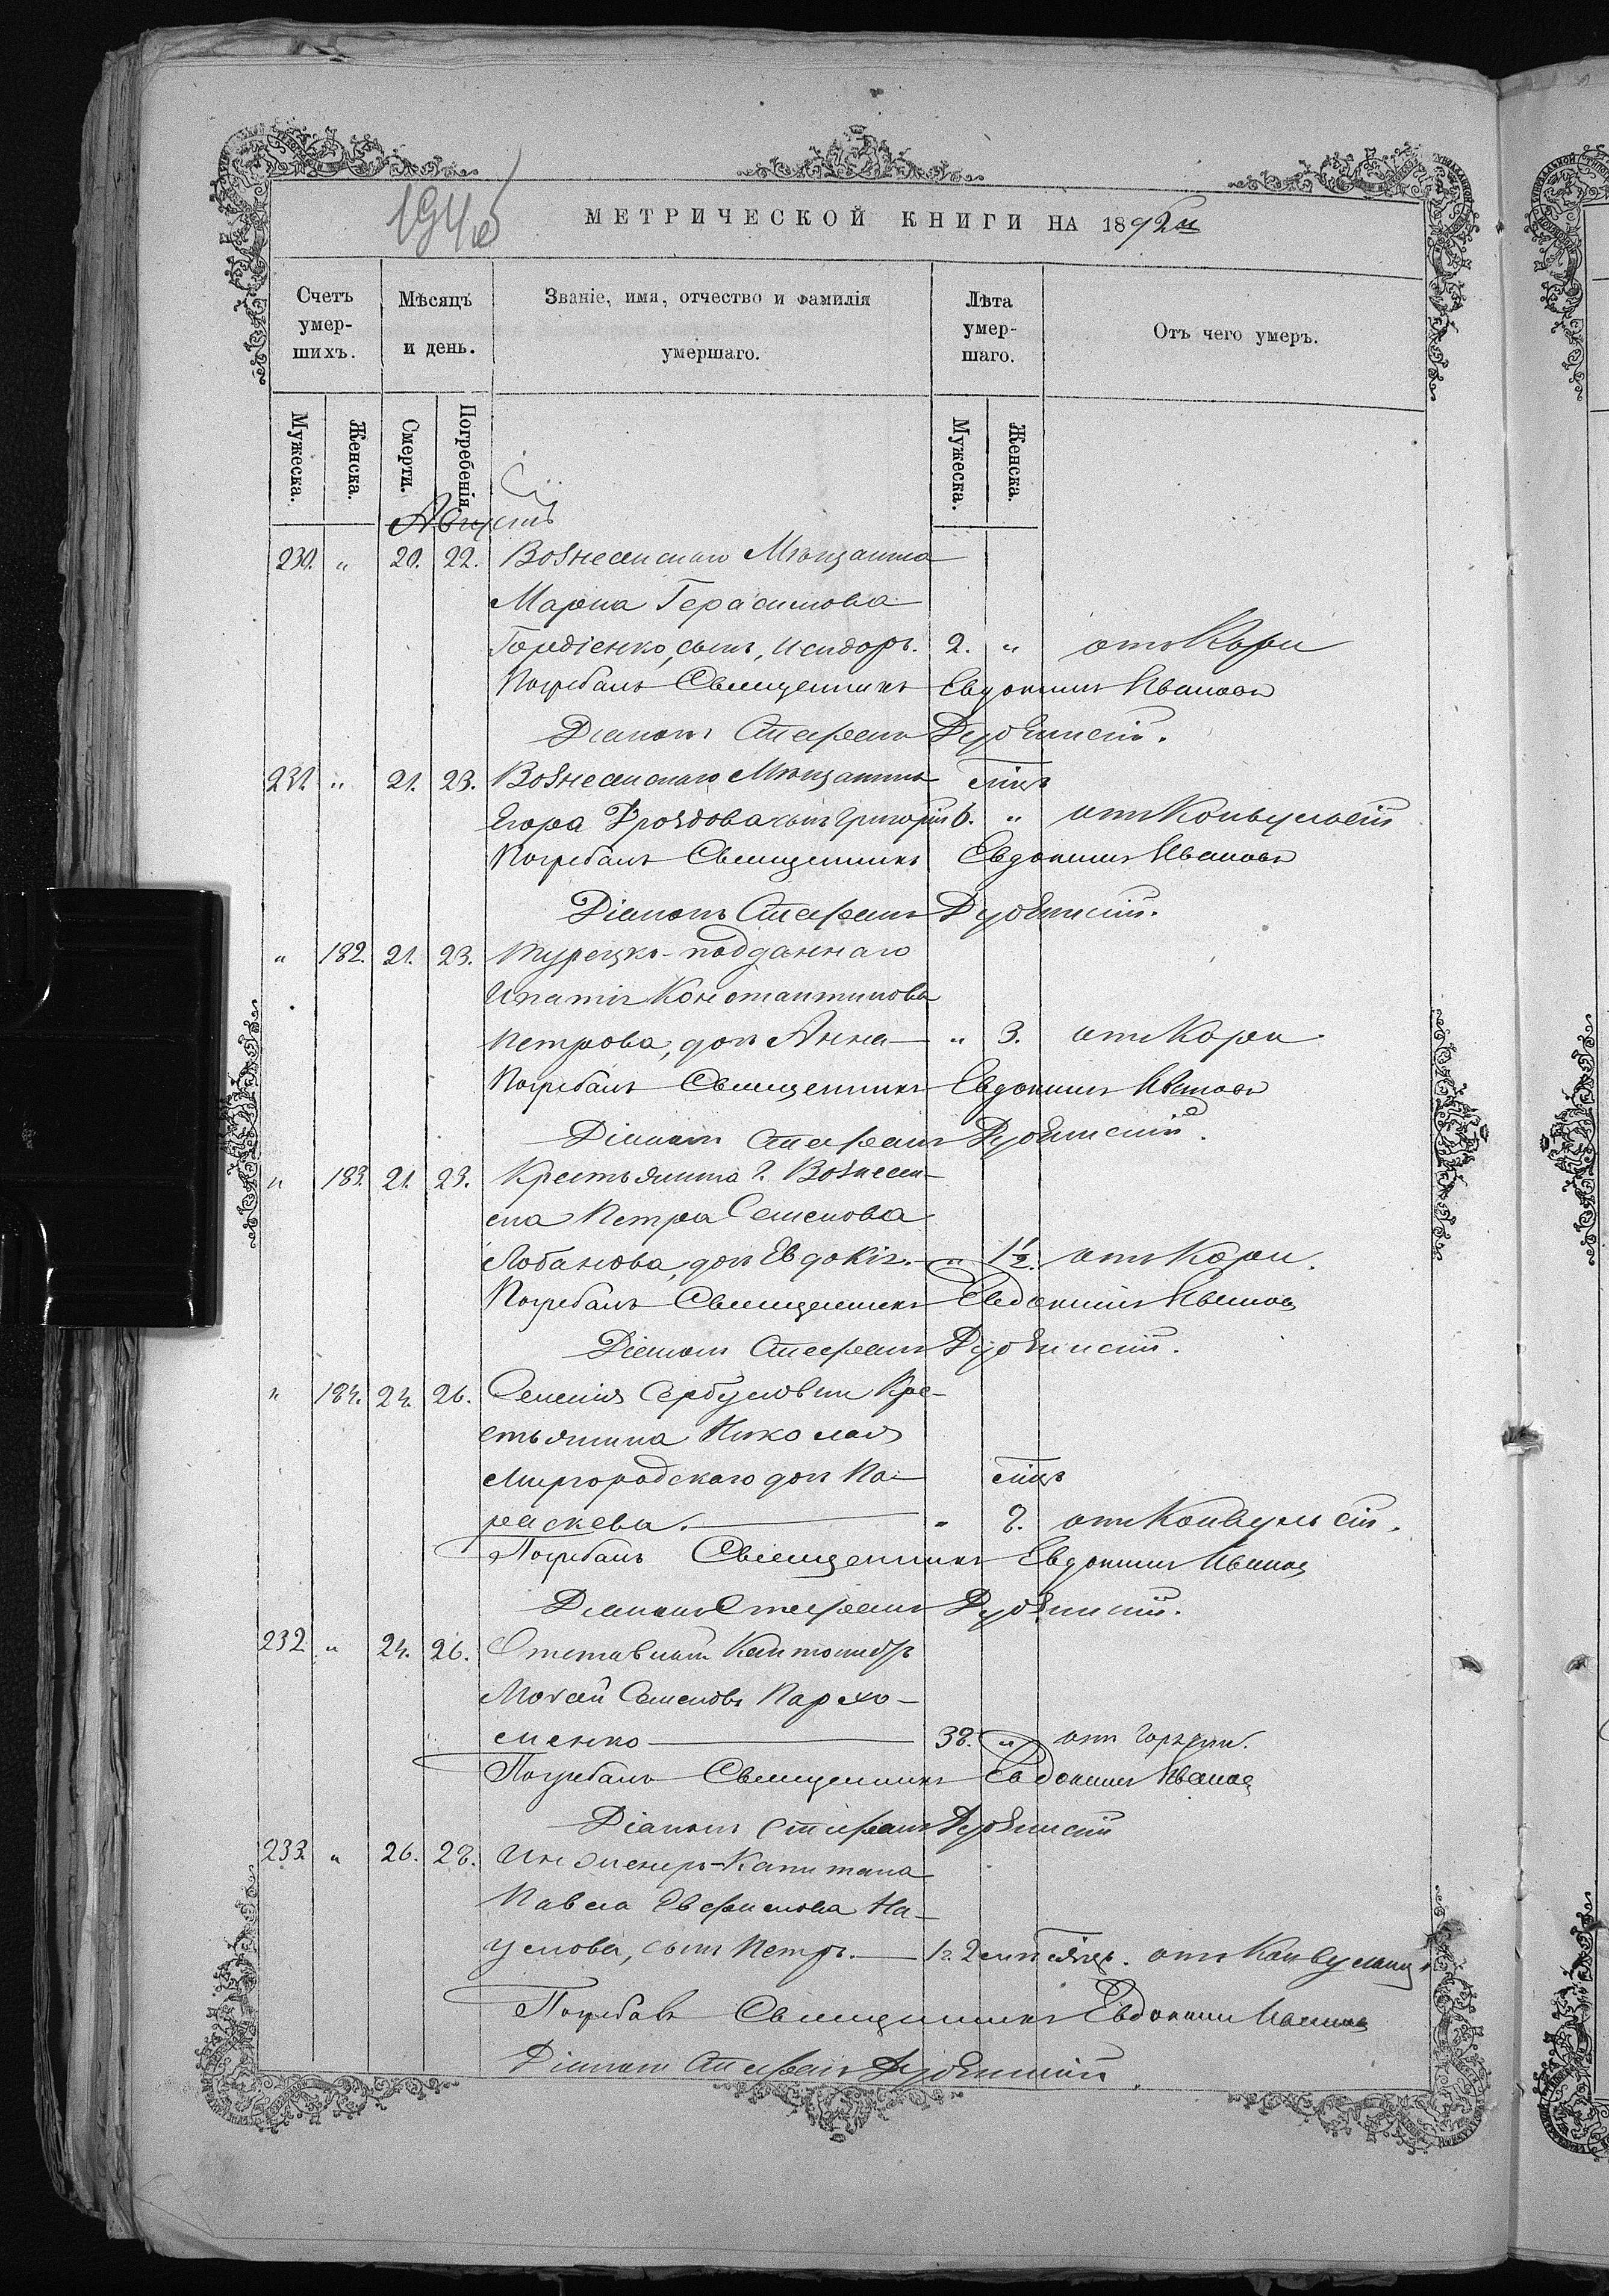 194об
МЕТРИЧЕСКОЙ КНИГИ НА 1892й
Счетъ умер-шихъ.
Мѣсяцъ и день.
Званіе, имя, отчество и фамилія умершаго.
Лѣта умер-шаго.
Отъ чего умеръ.
Мужеска.
Женска.
Смерти.
Погребенія.
Мужеска.
Женска.
Августъ
230. " 20. 22. Вознесенскаго Мѣщанина
Марка Герасимова
Гордіенко, сынъ, Исидоръ. 2. " отъ Кори
Погребалъ Священникъ Евдокимъ Ивановъ
Діаконъ Стефанъ
231. " 21. 23. Вознесенскаго Мѣщанина мцъ
Егора Дроздова сынъ Григорій 6. " отъ Конвульсій
Погребалъ Священникъ Евдокимъ Ивановъ
Діаконъ Стефанъ
" 182. 21. 23. Турецко-подданнаго
Ипатія Константинова
Петрова, дочь Анна " 3. отъ Кори
Погребалъ Священникъ Евдокимъ Ивановъ
Діаконъ Стефанъ
" 183. 21. 23. Крестьянина г. Вознесен-
ска Петра Семенова
Лобанова, дочь Евдокія. " 1½. отъ Кори.
Погребалъ Священникъ Евдокимъ Ивановъ
Діаконъ Стефанъ
" 184. 24. 26. Селенія Сербуловки Кре-
стьянина Николая
Миргородскаго дочь Па- мцъ
раскева. " 8. отъ Конвульсій.
Погребалъ Священникъ Евдокимъ Ивановъ
Діаконъ Стефанъ
232. " 24. 26. Отставный
Мосей Семеновъ Пархо-
менко 38. " отъ горячки.
Погребалъ Священникъ Евдокимъ Ивановъ
Діаконъ Стефанъ
233. " 26. 28. Инженеръ-Капитана
Павла Евфимова На-
умова, сынъ Петръ. 1 г. 2 мѣсяц. отъ Конвульсій
Погребалъ Священникъ Евдокимъ Ивановъ
Діаконъ Стефанъ